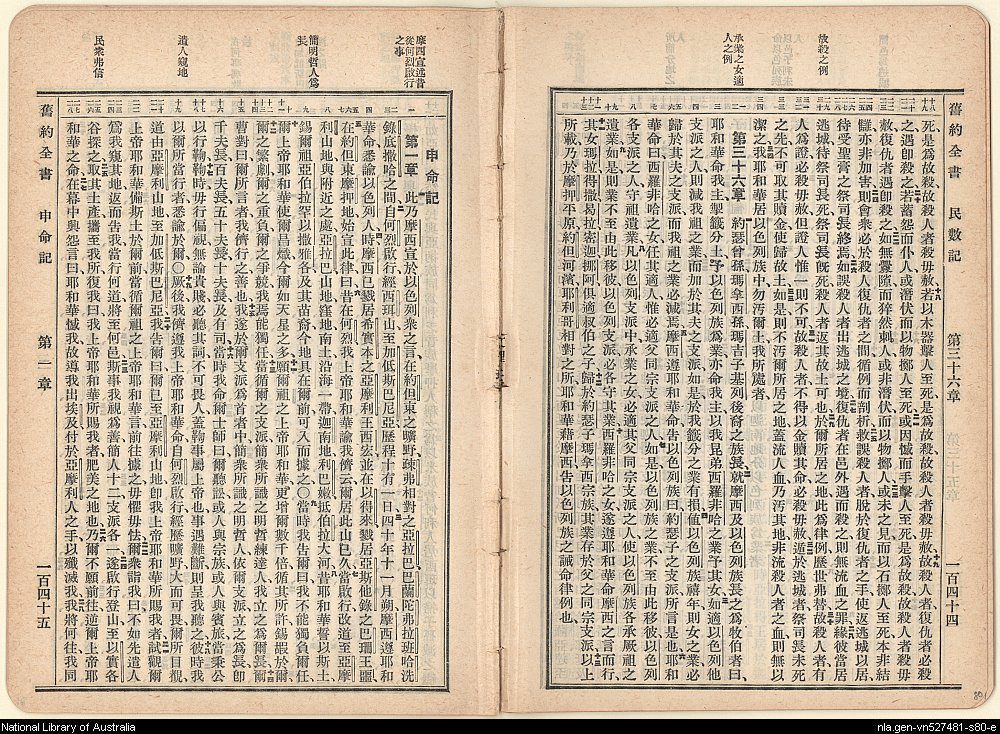 舊約全書 民數記 第三十六章 一百四十四
故殺之例
承業之女適
人之例
死是爲故殺故殺人者殺毋赦若以木器擊人至死是爲故殺故殺人者殺毋赦故殺人者復仇者必殺
之遇卽殺之若蓄怨而仆人或潛伏而以物擲人至死或因憾而手擊人至死是爲故殺故殺人者殺毋
赦復仇者遇卽殺之如無釁隙而猝然刺人或非潛伏而以物擲人或未之見而以石擲人至死本非結
讎亦非加害則會衆必於殺人復仇者之間循例而剖析救誤殺人者脫於復仇者之手使返逃城以居
待受聖膏之祭司長終焉如誤殺人者出逃城之境復仇者在邑外遇而殺之則無流血之罪緣彼當居
逃城待祭司長死祭司長旣死殺人者返其故土可也於爾所居之地此爲律例歷世弗替故殺人者有
人爲證必殺毋赦但證人惟一則不可故殺人者不得以金贖其命必殺毋赦遁於逃城者祭司長未死
之先不可取其贖金使歸故土如是則不汚爾所居之地蓋流人血乃汚其地非流殺人者之血則無以
潔之我耶和華居以色列族中勿汚爾土我所處者
第三十六章 約瑟曾孫瑪拿西孫瑪吉子基列後裔之族長就摩西及以色列族長之爲牧伯者曰
耶和華命我主掣籤分土予以色列族爲業亦命我主以我昆弟西羅非哈之業予其女如適以色列他
支派之人則減我祖之業而加於其夫之支派如是於我籤分之業有損値以色列族禧年則女之業必
歸於其夫之支派而我祖之業必減焉摩西遵耶和華命告以色列族曰約瑟子之支派所言是也耶和
華命曰西羅非哈之女任其適人惟必適父同宗支派之人如是以色列族之業不至由此移彼以色列
各支派之人守祖遺業凡以色列支派中承業之女必適其父同宗支派之人使以色列族各承厥祖之
遺業如是則業不至由此移彼以色列支派必各守其業西羅非哈之女遂遵耶和華命摩西之言而行
其女瑪拉得撒曷拉密迦挪阿俱適叔伯之子歸於約瑟子瑪拿西宗族其業存於父之同宗支派以上
所載乃於摩押平原約但河濱耶利哥相對之所耶和華藉摩西告以色列族之誡命律例也
舊約全書 申命記 第一章 一百四十五
摩西宣述昔
從何烈啟行
之事
簡明哲人爲
長
遣人窺地
民衆弗信
申命記
第一章 此乃摩西宣於以色列衆之言在約但東之曠野疎弗相對之亞拉巴巴蘭陀弗拉班哈洗
錄底撒哈之間自何烈啟行經西珥山至加低斯巴尼亞歷程十有一日四十年十一月朔摩西遵耶和
華命悉諭以色列人時摩西已戮居希實本之亞摩利王西宏並在以得來戮居亞斯他錄之巴珊王噩
在約但東摩押地始宣此律曰昔在何烈我上帝耶和華諭我儕云爾居此山已久當啟行改道至亞摩
利山地與附近之處亞拉巴山地窪地南土沿海一帶迦南地利巴嫩抵伯拉大河昔耶和華誓以斯土
錫爾祖亞伯拉罕以撒雅各及其苗裔今地具在爾前可入而據之〇當時我告爾曰我不能獨負爾任
爾上帝耶和華使爾昌熾今爾如天星之多願爾祖之上帝耶和華更增爾數千倍循其所許錫嘏於爾
爾之繁劇爾之重負爾之爭競我焉能獨任當循爾之支派簡衆所識之明哲練達人我立之爲長爾
曹對曰爾所言者我儕行之善也我遂於爾支派爲首者中簡衆所識之明哲人依爾支派立之爲長卽
千夫長百夫長五十夫長十夫長及有司當時我命爾士師曰爾聽訟或人與宗族或人與賓旅當秉公
以行鞫鞫時毋行偏視無論貴賤必聽其詞不可畏人蓋鞫事屬上帝也事遇難斷則呈我聽之彼時我
以爾所當行者悉諭於爾〇厥後我儕遵我上帝耶和華命自何烈啟行經歷曠野大而可畏爾所目覩
道由亞摩利山地至加低斯巴尼亞我告爾曰爾已至亞摩利山地卽我上帝耶和華所賜我者試觀爾
上帝耶和華斯土於爾前當循爾祖之上帝耶和華言前往據之毋懼毋怯爾衆詣我曰我不如先遣人
爲我窺其地返而告我當行何道將至何邑斯事我視爲善簡人十二支派各一遂啟行登山至以實各
谷探之取其土產攜至我所復我曰我上帝耶和華所賜我者肥美之地也乃爾不願前往逆爾上帝耶
和華之命在幕中興怨言曰耶和華憾我故導我出埃及付於亞摩利人之手以殲滅我我將何往我同
National Library of Australia
nla.gen-vn527481-s80-e